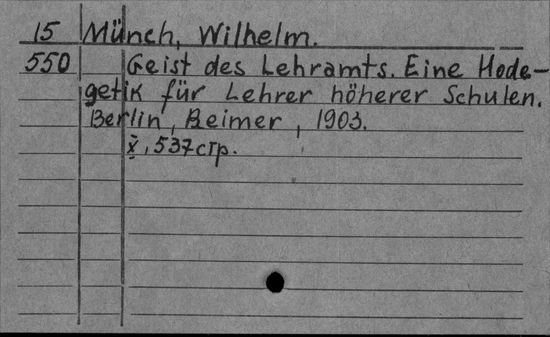 15 Münch, Wilhelm.
550 Geist des Lehramts. Eine Hode-
getik für Lehrer höherer Schulen.
Berlin, Reimer, 1903.
X, 537 стр.